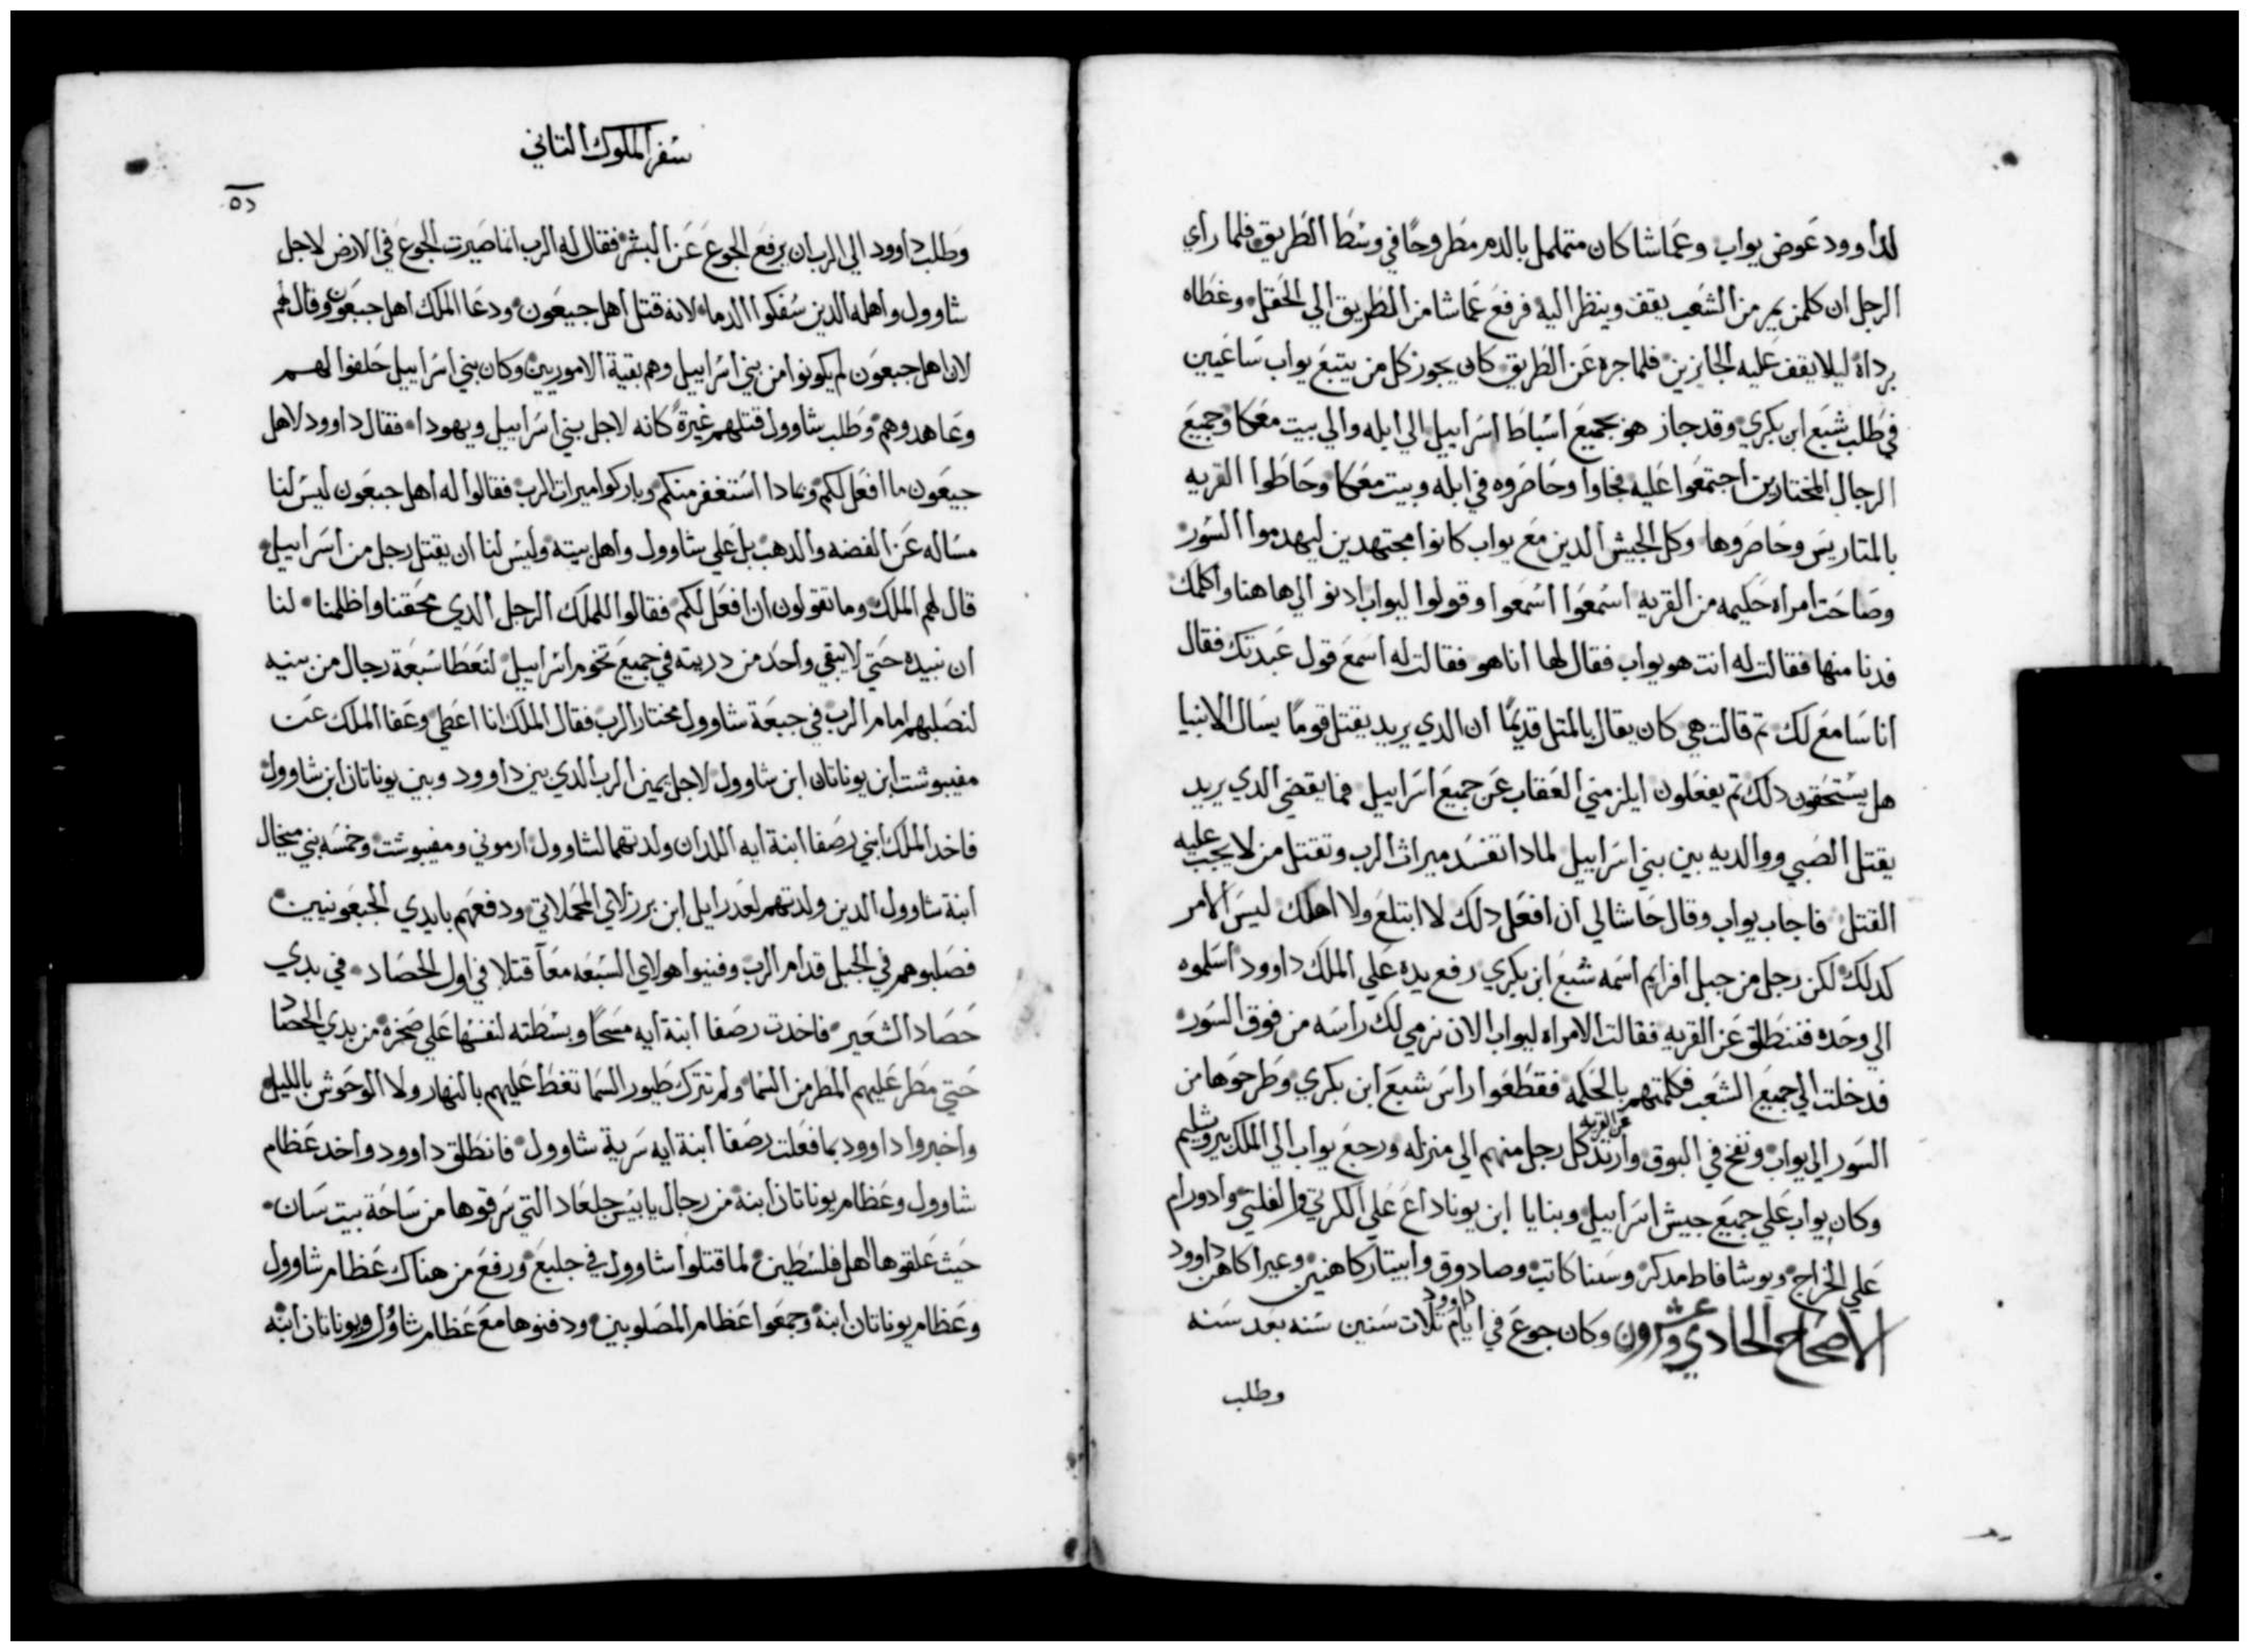 لداوود عوض يواب وعماشا كان متململ بالدم مطروحًا في وسط الطريق فلما راي
الرجل ان كلمن يمر من الشعب يقف وينظر اليه فرفع عماشا من الطريق الي الحقل وغطاه
برداه ليلا يقف عليه الجايزين فلما جره عن الطريق كان يجوز كل من يتبع يواب ساعيين
في طلب شبع ابن بكري وقد جاز هو بجميع اسباط اسراييل الي ابله والي بيت معكا وجميع
الرجال المختارين اجتمعوا عليه فجاوا وحاصروه في ابله وبيت معكا وحاطوا القريه
بالمتاريس وحاصروها وكل الجيش الدين مع يواب كانوا مجتهدين ليهدموا السور
وصاحت امراه حكيمه من القريه اسمعوا اسمعوا وقولوا ليواب ادنو الي هاهنا واكلمك
فدنا منها فقالت له انت هو يواب فقال لها انا هو فقالت له اسمع قول عبدتك فقال
انا سامع لك تم قالت هي كان يقال بالمتل قديمًا ان الدي يريد يقتل قومًا يسال الانبيا
هل يستحقون دلك تم يفعلون ايلزمني العقاب عن جميع اسراييل فما يقضي الدي يريد
يقتل الصبي ووالديه بين بني اسراييل لمادا تفسد ميراث الرب وتقتل من لا يجب عليه
القتل فاجاب يواب وقال حاشا لي ان افعل دلك لا ابتلع ولا اهلك ليس الامر
كدلك لكن رجل من جبل افرايم اسمه شبع ابن بكري رفع يده علي الملك داوود اسلموه
الي وحده فننطلق عن القريه فقالت الامراه ليواب الان نرمي لك راسه من فوق السور
فدخلت الي جميع الشعب فكلمتهم بالحكمه فقطعوا راس شبع ابن بكري وطرحوها من
السور الي يواب ونفخ في البوق وارتد عن القريه كل رجل منهم الي منزله ورجع يواب الي الملك بيروشليم
وكان يواب علي جميع جيش اسراييل وبنايا ابن يوناداع علي الكرتي والفلتي وادورام
علي الخراج ويوشافاط مدكر وسسا كاتب وصادوق وابيتار كاهنين وعيرا كاهن داوود
الاصحاح الحادي وعشرون وكان جوع في ايام داوود تلات سنين سنه بعد سنه
وطلب
سفر الملوك التاني
وطلب داوود الي الرب ان يرفع الجوع عن البشر فقال له الرب انما صيرت الجوع في الارض لاجل
شاوول واهله الدين سفكوا الدما لانه قتل اهل جبعون ودعا الملك اهل جبعون وقال لهم
لان اهل جبعون لم يكونوا من بني اسراييل وهم بقية الاموريين وكان بني اسراييل حلفوا لهم
وعاهدوهم وطلب شاوول قتلهم غيرةً كانه لاجل بني اسراييل ويهودا فقال داوود لاهل
جبعون ما افعل لكم وبمادا استغفر منكم وباركوا ميرات الرب فقالوا له اهل جبعون ليس لنا
مساله عن الفضه والدهب بل علي شاوول واهل بيته وليس لنا ان يقتل رجل من اسراييل
قال لهم الملك وما تقولون ان افعل لكم فقالوا للملك الرجل الدي محقنا واظلمنا لنا
ان نبيده حتي لا يبقي واحد من دريته في جميع تخوم اسراييل لنعطا سبعة رجال من بنيه
لنصلبهم امام الرب في جبعة شاوول مختار الرب فقال الملك انا اعطي وعفا الملك عن
مفيبوشت ابن يوناتان ابن شاوول لاجل يمين الرب الدي بين داوود وبين يوناتان ابن شاوول
فاخد الملك ابني رصفا ابنة ايه اللدان ولدتهما لشاوول ارموني ومفيبوشت وخمسه بني ميخال
ابنة شاوول الدين ولدتهم لعدرايل ابن برزلاي المحملاتي ودفعهم بايدي الجبعونيين
فصلبوهم في الجبل قدام الرب وفنيوا هولاي السبعه معاً قتلا في اول الحصاد في بدي
حصاد الشعير فاخدت رصفا ابنة ايه مسحًا وبسطته لنفسها علي صخرة من بدي الحصاد
حتي مطر عليهم المطر من السما ولم تترك طيور السما تغط عليهم بالنهار ولا الوحوش بالليل
واخبروا داوود بما فعلت رصفا ابنة ايه سرية شاوول فانطلق داوود واخد عظام
شاوول وعظام يوناتان ابنه من رجال يابيس جلعاد التي سرقوها من ساحة بيت سان
حيث علقوها اهل فلسطين لما قتلوا شاوول في جلبع ورفع من هناك عظام شاوول
وعظام يوناتان ابنه وجمعوا عظام المصلوبين ودفنوها مع عظام شاوول ويوناتان ابنه